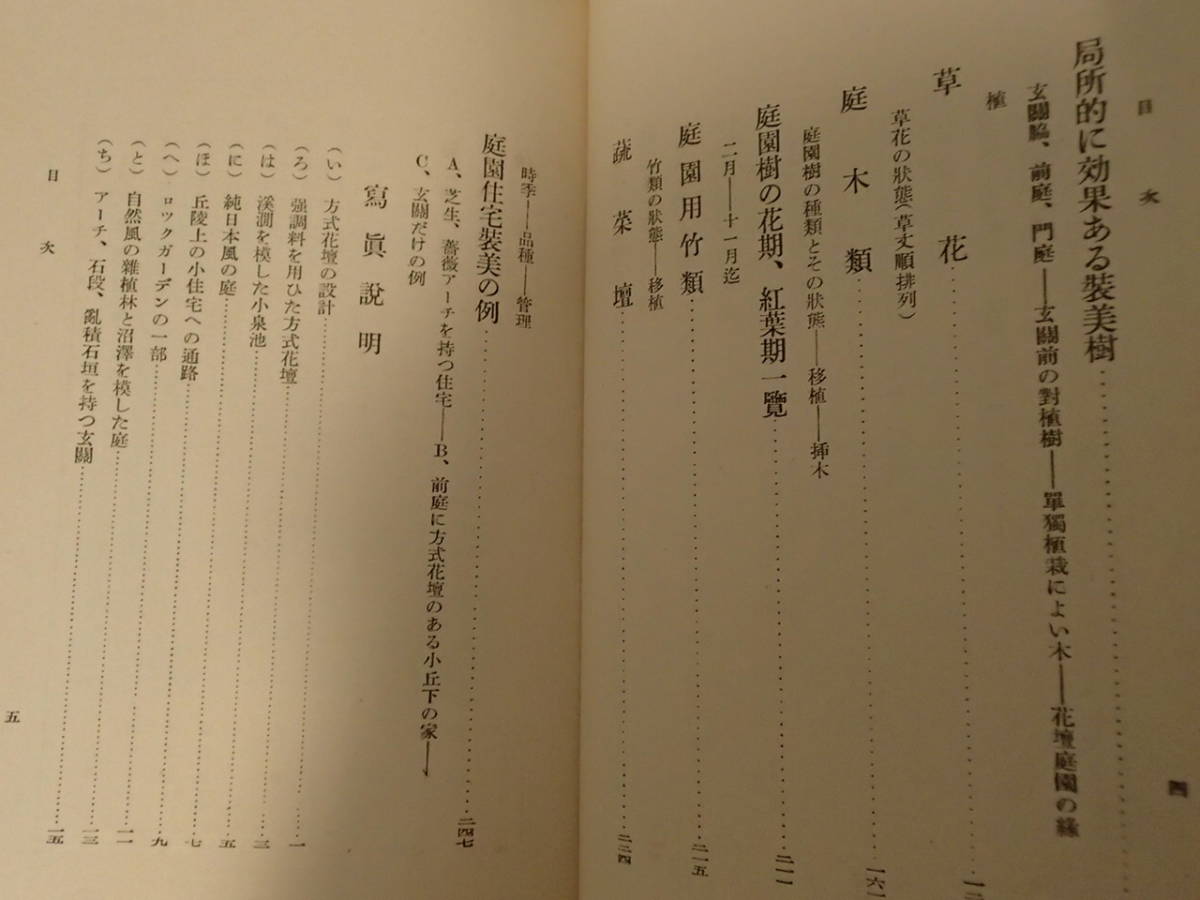 目次
四
局所的に効果ある装美樹
玄關脇、前庭、門庭——玄關前の對植樹——單獨植栽によい木——花壇庭園の縁
植
草花
草花の狀態(草丈順排列)
庭木類 一六一
庭園樹の種類とその狀態——移植——挿木
庭園樹の花期、紅葉期一覽 二一一
二月——十一月迄
庭園用竹類 二一五
竹類の狀態——移植
蔬菜壇 二二四
時季——品種——管理
庭園住宅裝美の例 二四七
A、芝生、薔薇アーチを持つ住宅——B、前庭に方式花壇のある小丘下の家——
C、玄關だけの例
寫眞說明
(い) 方式花壇の設計 一
(ろ) 强調料を用ひた方式花壇 三
(は) 溪澗を模した小泉池 五
(に) 純日本風の庭 七
(ほ) 丘陵上の小住宅への通路 九
(へ) ロツクガーデンの一部 一一
(と) 自然風の雜植林と沼澤を模した庭 一三
(ち) アーチ、石段、亂積石垣を持つ玄關 一五
目次
五